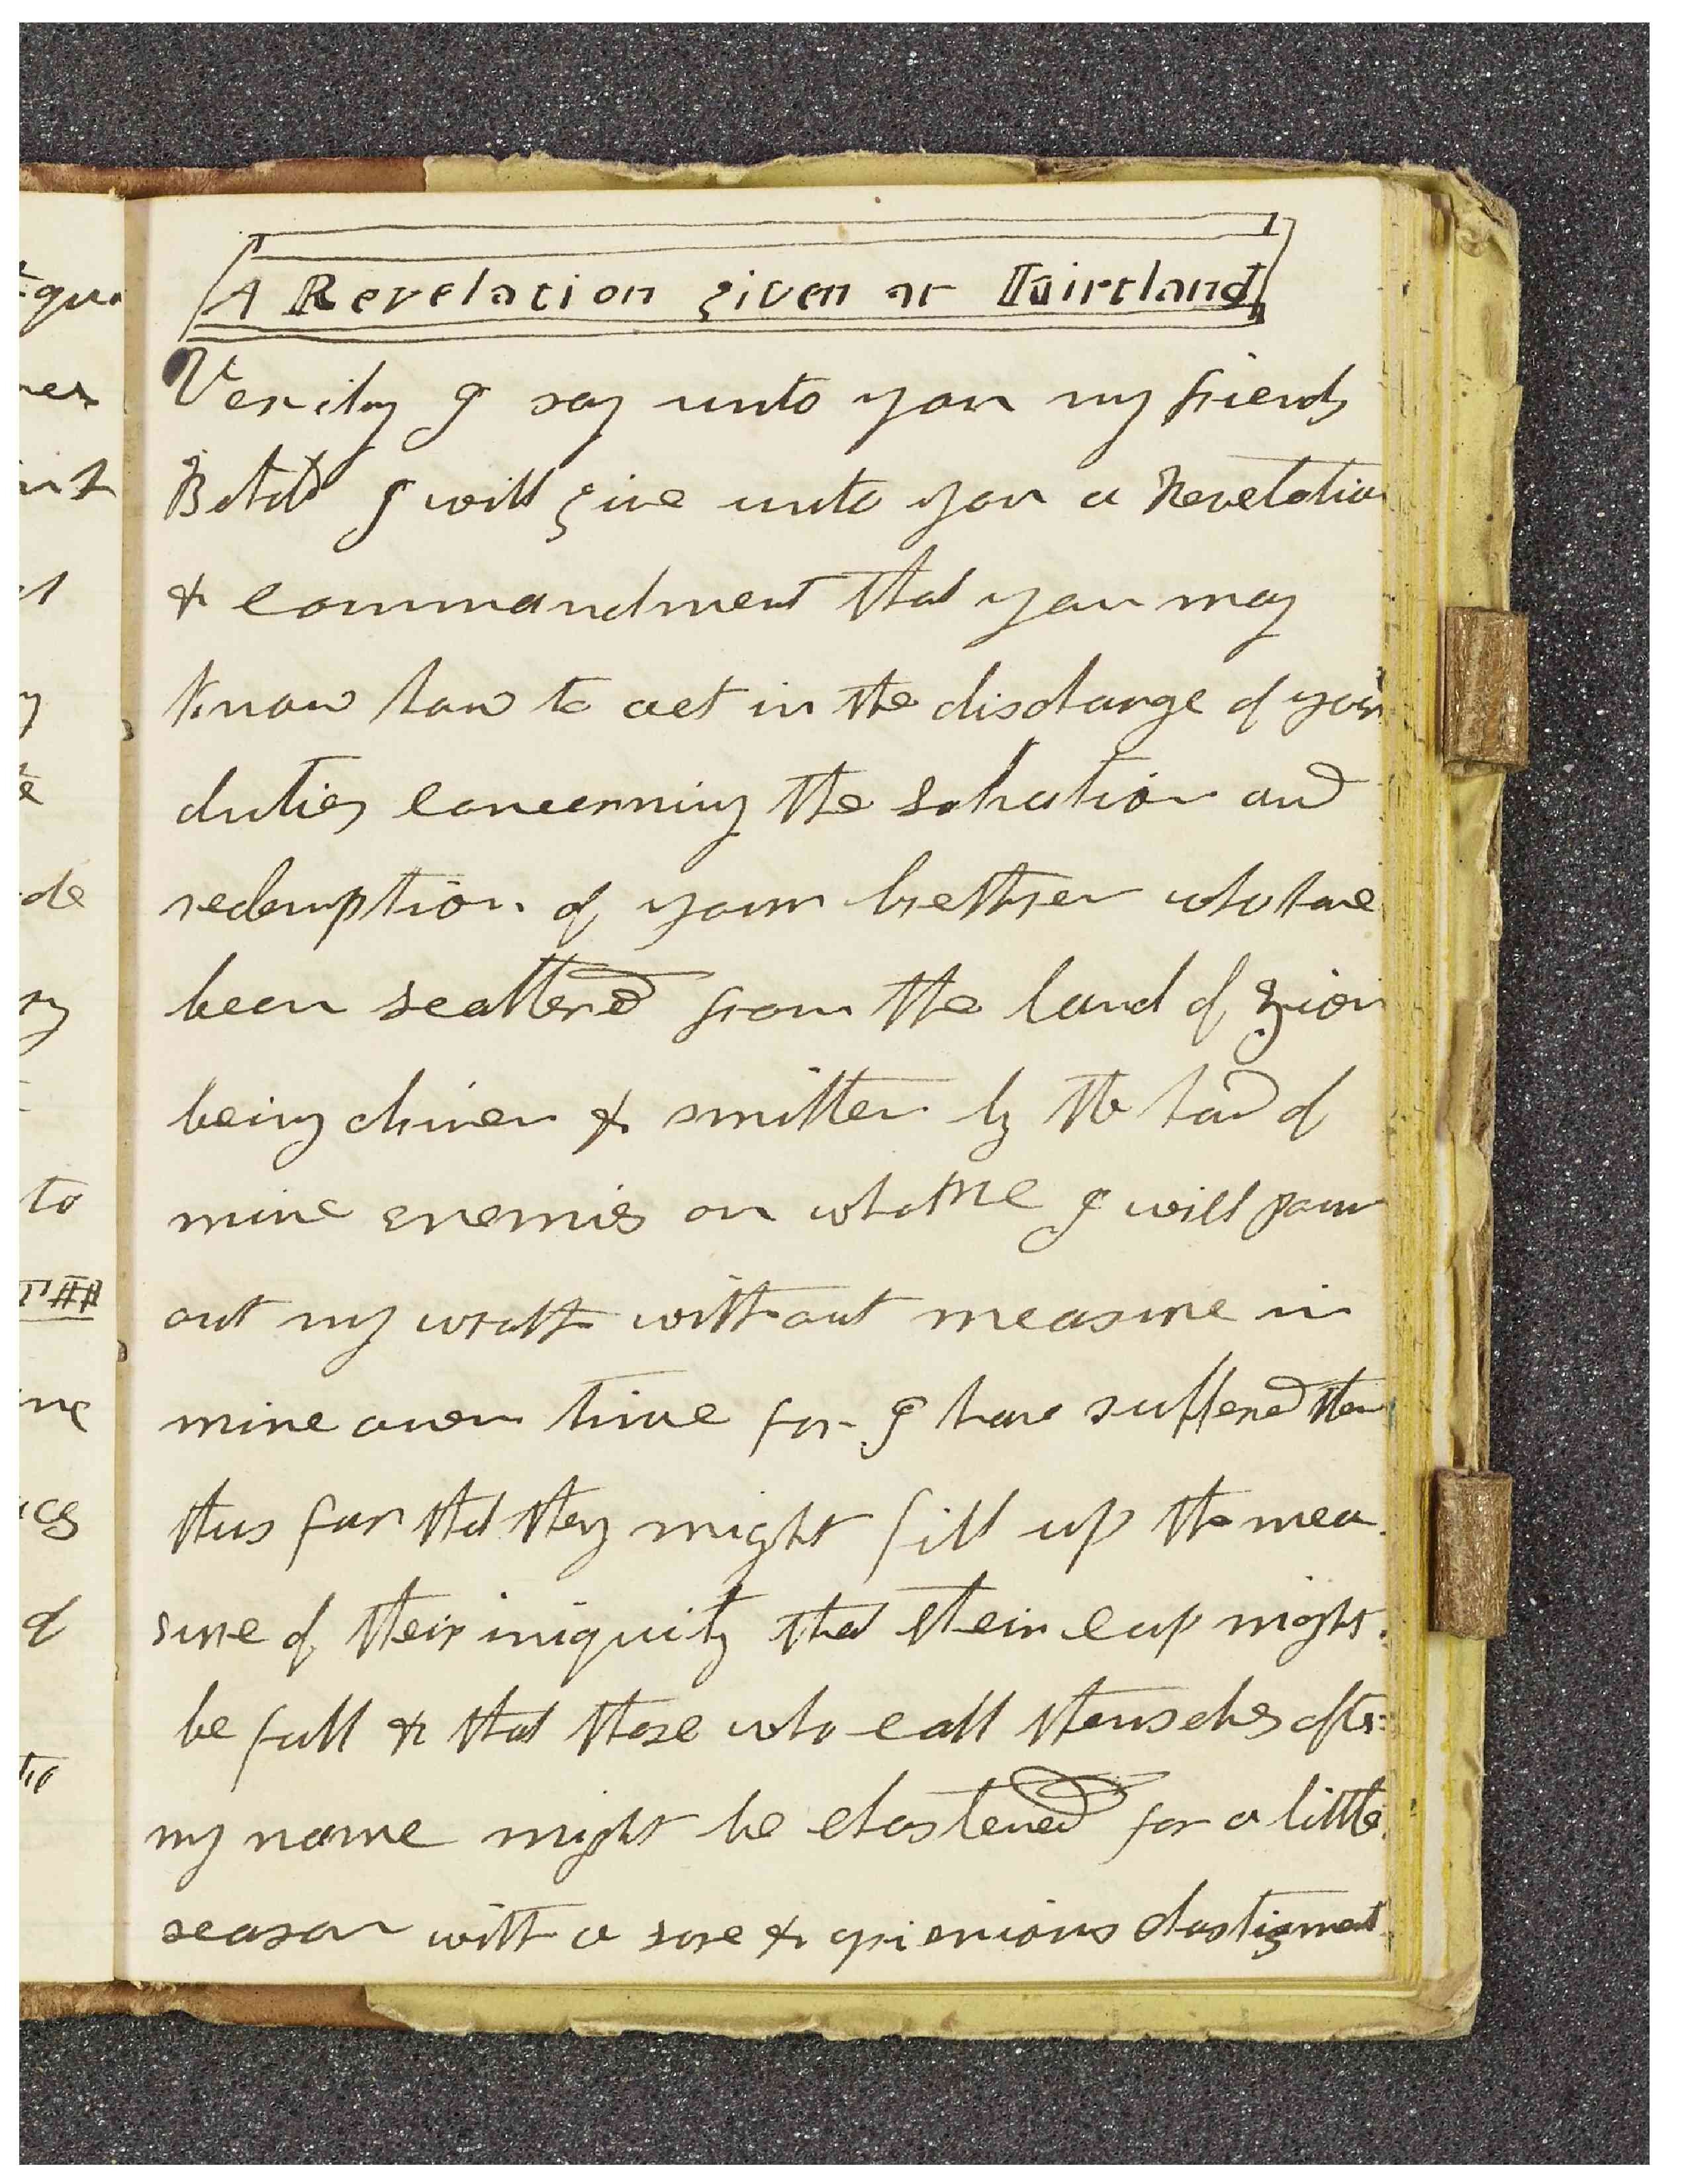 A Revelation given at Kirtland
Verily I say unto you my friends
Behold I will give unto you a Revelation
& commandment that you may
know how to act in the discharge of your
duties concerning the salvation and
redemption of your brethren who have
been scattered from the land of zion
being driven & smitten by the hand of
mine enemies on whome I will pour
out my wrath without measure in
mine owen time for I have suffered them
thus far that they might fill up the mea
sure of their iniquity that their cup might
be full & that those who call themselves after
my name might be chastened for a little
season with a sore & grievious chastizment